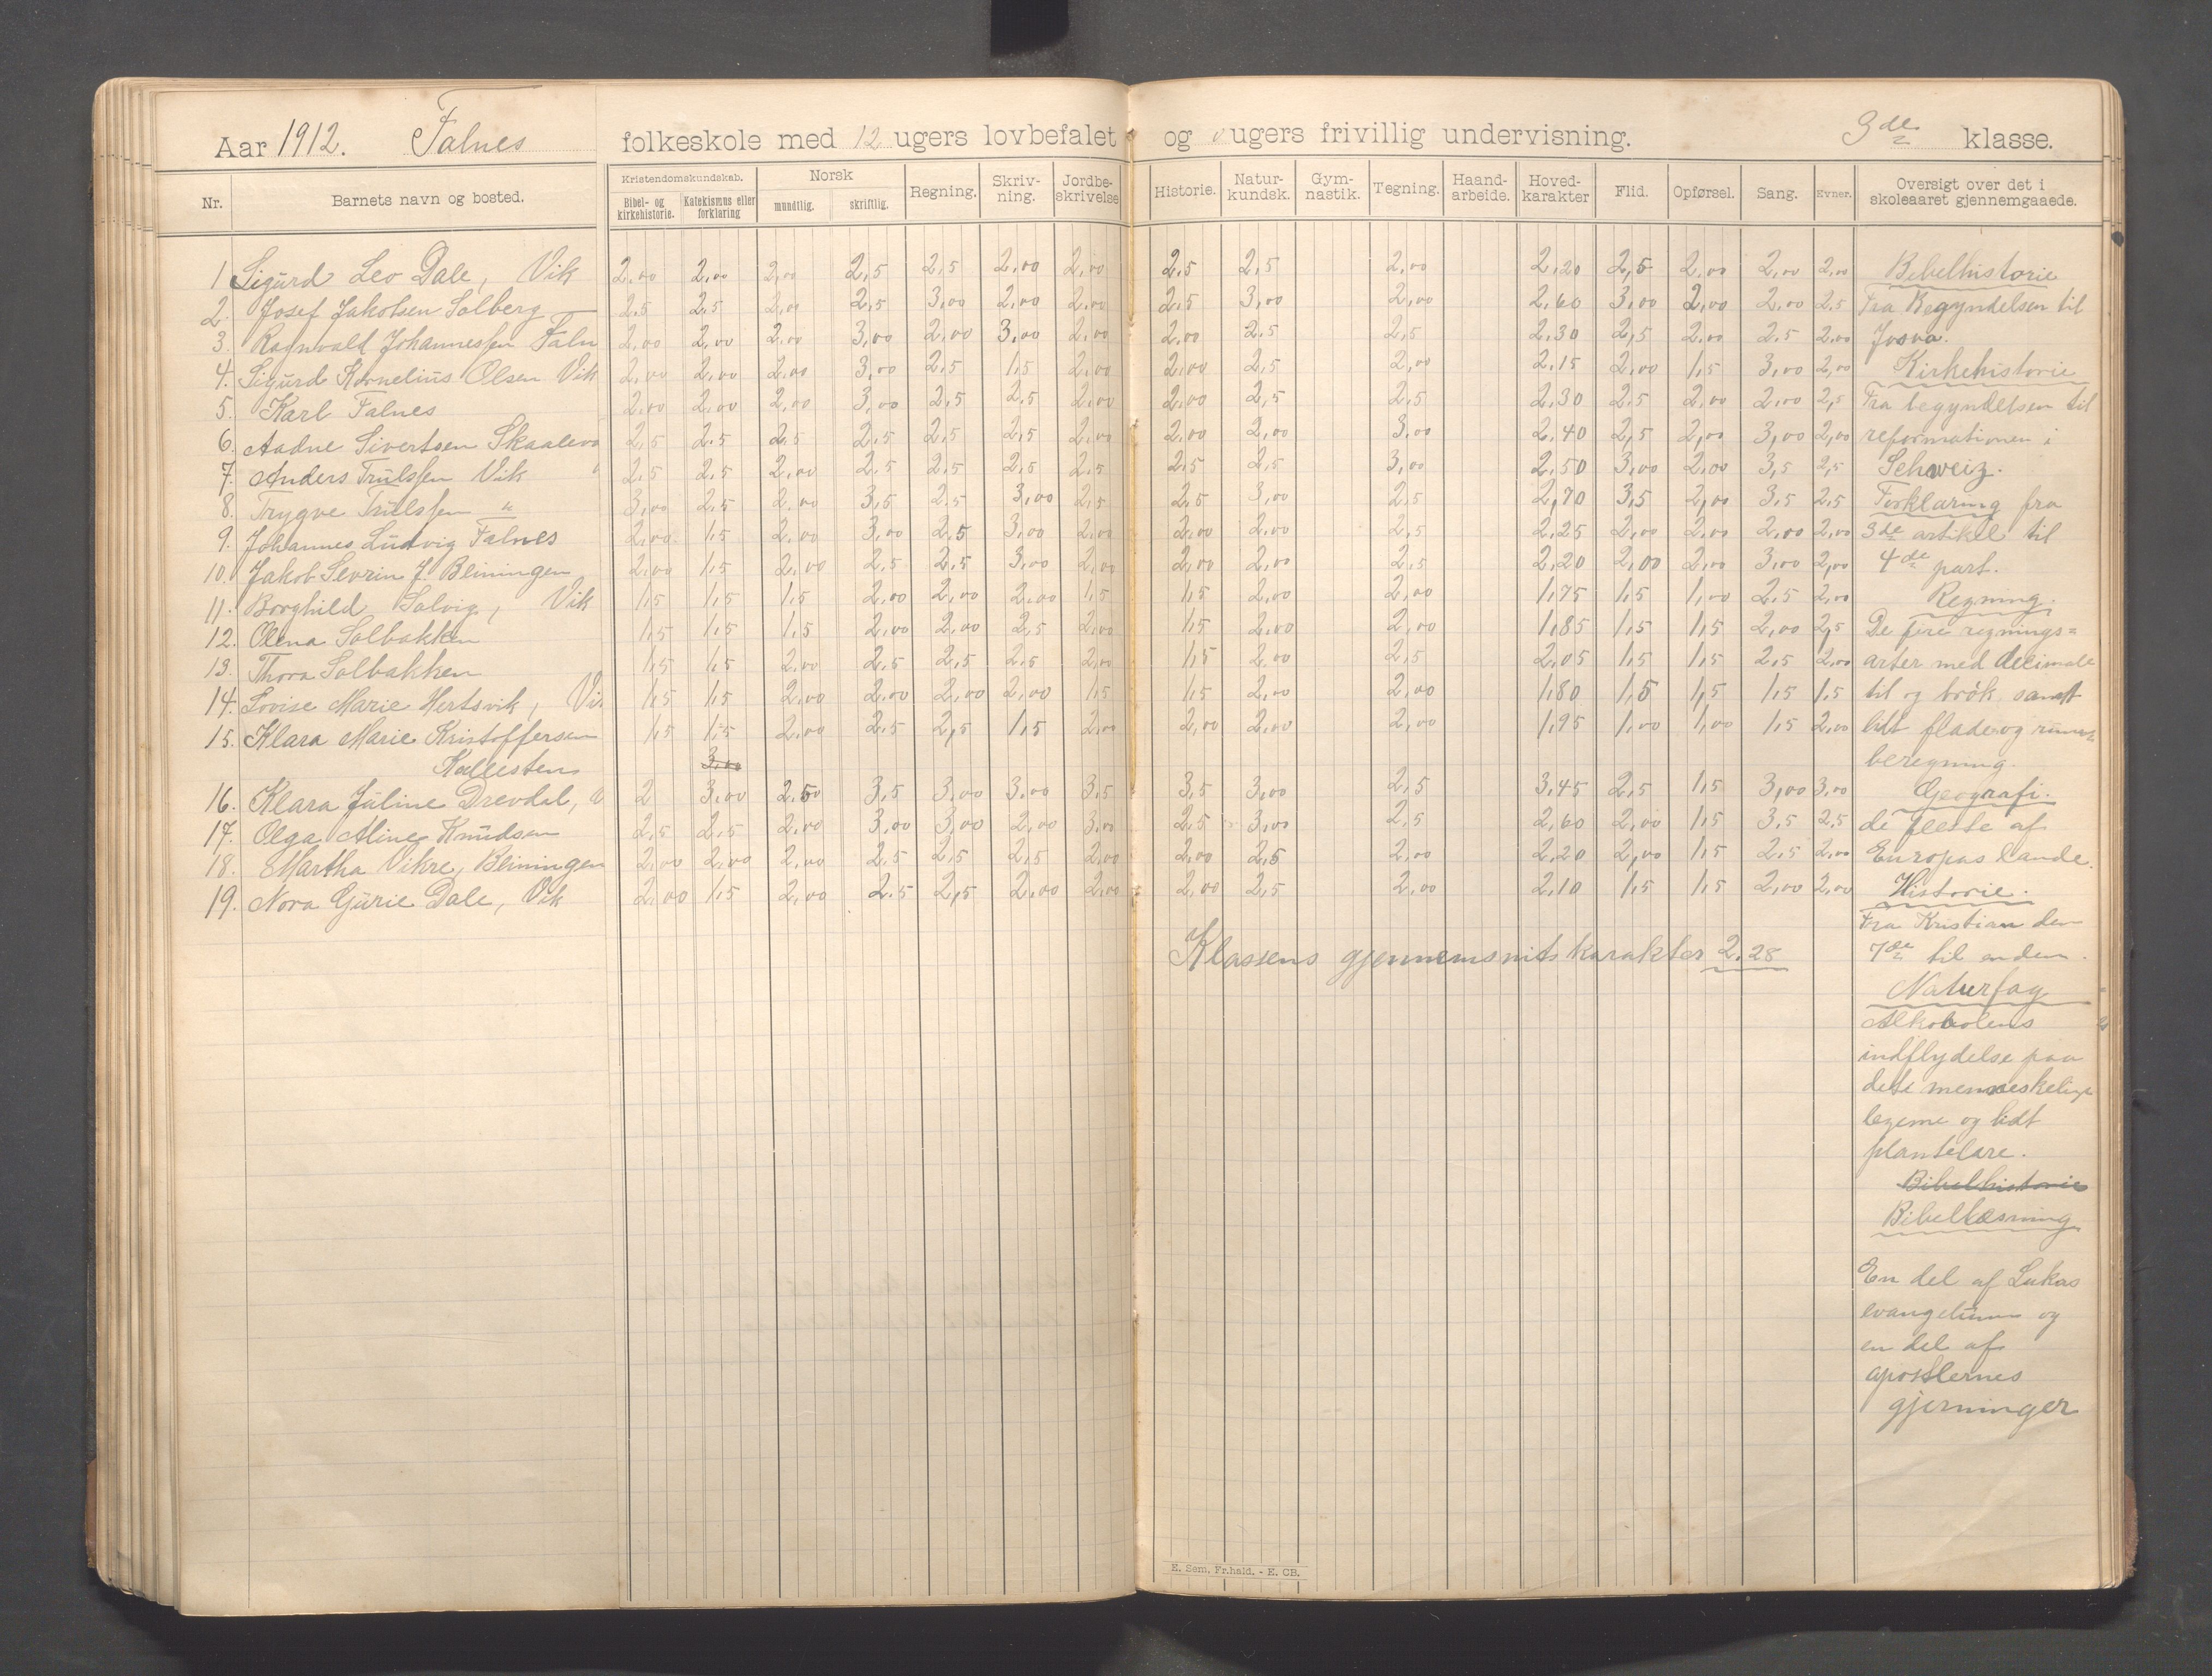 Aar 1912. Falnes folkeskole med 12 ugers lovbefalet og 0 ugers frivillig undervisning. 3de klasse.
Nr. Barnets navn og bosted. Kristendomskundskab. Bibel- og kirkehistorie. Katekismus eller forklaring Norsk mundtlig. skriftlig. Regning. Skriv-ning. Jordbe-skrivelse Historie. Natur-kundsk. Gym-nastik. Tegning. Haand-arbeide. Hoved-karakter Flid. Opførsel. Sang. Evner. Oversigt over det i skoleaaret gjennemgaaede.
1 Sigurd Leo Dale, Vik 2,00 2,00 2,00 2,5 2,5 2,00 2,00 2,5 2,5 2,00 2,20 2,5 2,00 2,00 2,00 Bibelhistorie
2. Josef Jakobsen Solberg 2,5 2,5 2,00 2,5 3,00 2,00 2,00 2,5 3,00 2,00 2,60 3,00 2,00 2,00 2,5 Fra Begyndelsen til
3. Ragnvald Johannessen Faln 2,00 2,00 2,00 3,00 2,00 3,00 2,00 2,00 2,5 2,5 2,30 2,5 2,00 2,5 2,00 Josva.
4. Sigurd Kornelius Olsen Vik 2,00 2,00 2,00 3,00 2,5 1,5 2,00 2,00 2,5 2,00 2,15 2,00 1,5 3,00 2,00 Kirkehistorie
5. Karl Falnes 2,00 2,00 2,00 3,00 2,5 2,5 2,00 2,00 2,5 2,5 2,30 2,5 2,00 2,00 2,5 Fra begyndelsen til
6. Aadne Sivertsen Skaalev 2,5 2,5 2,5 2,5 2,5 2,5 2,00 2,00 2,00 3,00 2,40 2,5 2,00 3,00 2,00 reformationen i
7. Anders Trulssen Vik 2,5 2,5 2,00 2,5 2,5 2,5 2,5 2,5 2,5 3,00 2,50 3,00 2,00 3,5 2,5 Schweiz.
8. Trygve Trulssen " 3,00 2,5 2,00 3,5 2,5 3,00 2,5 2,5 3,00 2,5 2,70 3,5 2,00 3,5 2,5 Forklaring fra
9. Johannes Ludvig Falnes 2,00 1,5 2,00 3,00 2,5 3,00 2,00 2,00 2,00 2,5 2,25 2,00 2,00 2,00 2,00 3de artikel til
10. Jakob Sevrin J. Beiningen 2,00 1,5 2,00 2,5 2,5 3,00 2,00 2,00 2,00 2,5 2,20 2,00 2,00 3,00 2,00 4de part.
11. Borghild Solvig, Vik 1,5 1,5 1,5 2,00 2,00 2,00 1,5 1,5 2,00 2,00 1,75 1,5 1,00 2,5 2,00 Regning.
12. Olena Solbakken 1,5 1,5 1,5 2,00 2,00 2,5 2,00 1,5 2,00 2,00 1,85 1,5 1,5 2,00 2,5 De fire regnings=
13. Thora Solbakken 1,5 1,5 2,00 2,5 2,5 2,5 2,00 1,5 2,00 2,5 2,05 1,5 1,5 2,5 2,00 arter med decimale
14. Lovise Marie Hertsvik, Vi 1,5 1,5 2,00 2,00 2,00 2,00 1,5 1,5 2,00 2,00 1,80 1,5 1,5 1,5 1,5 til og brøk samt
15. Klara Marie Kristoffersen 1,5 1,5 2,00 2,5 2,5 1,5 2,00 2,00 2,00 2,00 1,95 1,00 1,00 1,5 2,00 lidt flade og
Kallesten 3,00 beregning.
16. Klara Juline Drevdal, V 2 3,00 2,50 3,5 3,00 3,00 3,5 3,5 3,00 2,5 3,45 2,5 1,5 3,00 3,00 Geografi.
17. Olga Aline Knudsen 2,5 2,5 2,00 3,00 3,00 2,00 3,00 2,5 3,00 2,5 2,60 2,00 1,5 3,5 2,5 de fleste af
18. Martha Vikre, Beiningen 2,00 2,00 2,00 2,5 2,5 2,5 2,00 2,00 2,5 2,00 2,20 2,00 1,5 2,5 2,00 Europas lande.
19. Nora Gurie Dale, Vik 2,00 1,5 2,00 2,5 2,5 2,00 2,00 2,00 2,5 2,00 2,10 1,5 1,5 2,00 2,00 Historie.
Fra Kristian den
Klassens gjennemsnitskarakter 2,28 7de til enden.
Naturfag
Alkoholens
indflydelse paa
det menneskelige
legeme og lidt
plantelære.
Bibelhistorie
Bibellæsning
En del af Lukas
evangelium og
en del af
apostlernes
gjerninger
E. Sem, Fr.hald. - E. CB.